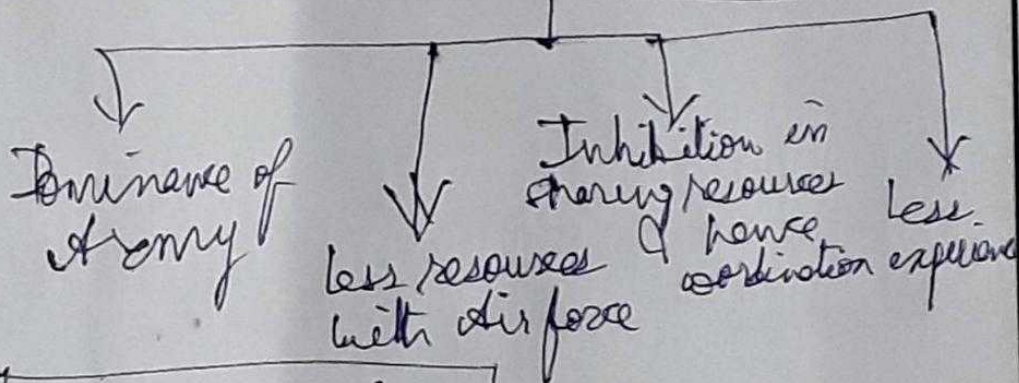 Dominance of
Army
less resources
with Air force
Inhibition in
sharing resources
& hence
coordination
Less
experience